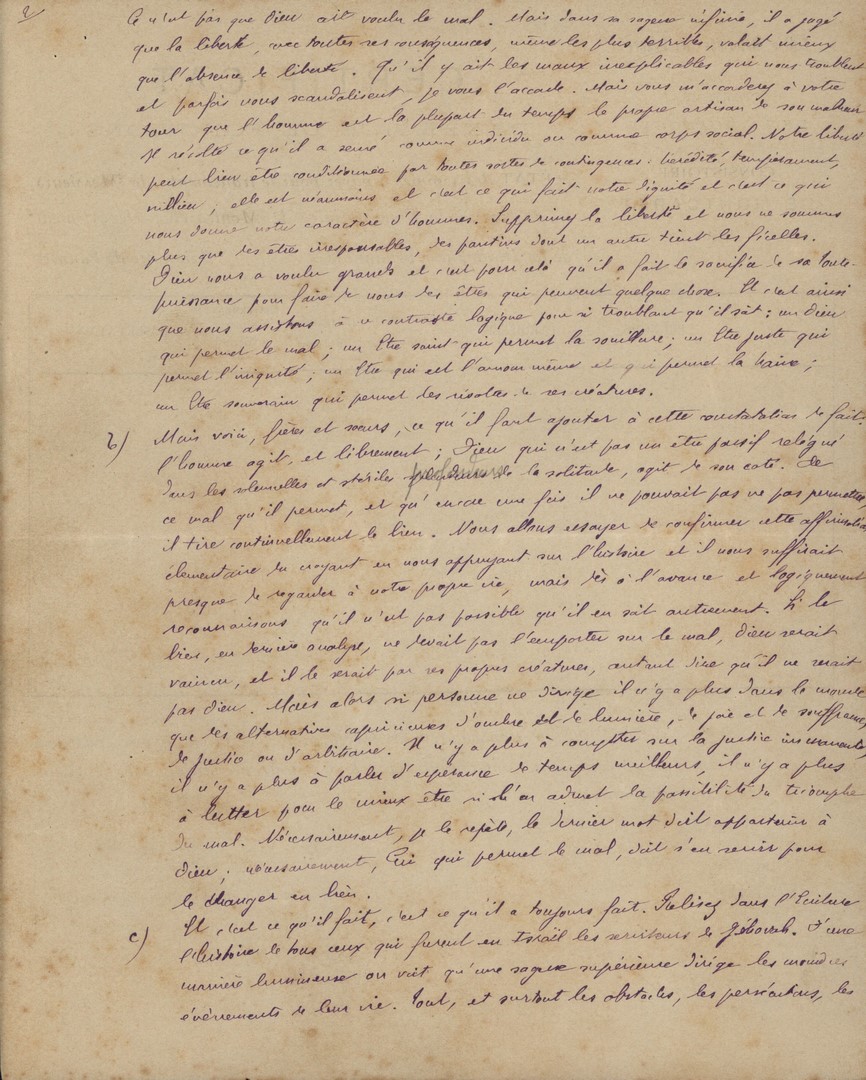 2/
Ce n'est pas que Dieu ait voulu le mal. Mais dans sa sagesse infinie, il a jugé
que la liberté, avec toutes ses conséquences, même les plus terribles, valait mieux
que l'absence de liberté. Qu'il y ait les maux inexplicables qui nous troublent
et parfois nous scandalisent, je vous l'accorde. Mais vous m'accorderez à votre
tour que l'homme est la plupart du temps le propre artisan de son malheur
Il récolte ce qu'il a semé comme individu ou comme corps social. Notre liberté
peut bien être conditionnée par toutes sortes de contingences : hérédité, tempérament,
millieu ; elle est néanmoins et c'est ce qui fait notre dignité et c'est ce qui
nous donne notre caractère d'hommes. Supprimez la liberté et nous ne sommes
plus que des êtres irresponsables, des pantins dont un autre tient les ficelles.
Dieu nous a voulu grands et c'est pour celà qu'il a fait le sacrifice de sa toute-
puissance pour faire de nous des êtres qui peuvent quelque chose. Et c'est ainsi
que nous assistons à ce contraste logique pour si troublant qu'il soit : un Dieu
qui permet le mal ; un Etre saint qui permet la souillure ; un Etre juste qui
permet l'iniquité ; un Etre qui est l'amour même et qui permet la haine ;
un Etre souverain qui permet les révoltes de ses créatures.
b) Mais voici, frères et sœurs, ce qu'il faut ajouter à cette constatation de fait.
l'homme agit, et librement ; Dieu qui n'est pas un être passif relégué
dans les solennelles et stériles profondeurs de la solitude, agit de son coté. De
ce mal qu'il permet, et qu'encore une fois il ne pouvait pas ne pas permettre,
il tire continuellement le bien. Nous allons essayer de confirmer cette affirmation
élémentaire du croyant en nous appuyant sur l'histoire et il nous suffirait
presque de regarder à notre propre vie, mais dès à l'avance et logiquement
reconnaissons qu'il n'est pas possible qu'il en soit autrement. Si le
bien, en dernière analyse, ne devait pas l'emporter sur le mal, Dieu serait
vaincu, et il le serait par ses propres créatures, autant dire qu'il ne serait
pas Dieu. Mais alors si personne ne dirige il n'y a plus dans le monde
que des alternatives capricieuses d'ombre et de lumière, de joie et de souffrance,
de justice ou d'arbitraire. Il n'y a plus à compter sur la justice immanente,
il n'y a plus à parler d'espérance de temps meilleurs, il n'y a plus
à lutter pour le mieux être si l'on admet la possibilité du triomphe
du mal. Nécessairement, je le répète, le dernier mot doit appartenir à
Dieu ; nécessairement, Lui qui permet le mal, doit s'en servir pour
le changer en bien.
c) Et c'est ce qu'il fait, c'est ce qu'il a toujours fait. Relisez dans l'Ecriture
l'histoire de tous ceux qui furent en Israël les serviteurs de Jéhovah. D'une
manière lumineuse on voit qu'une sagesse supérieure dirige les moindres
événements de leur vie. Tout, et surtout les obstacles, les persécutions, les